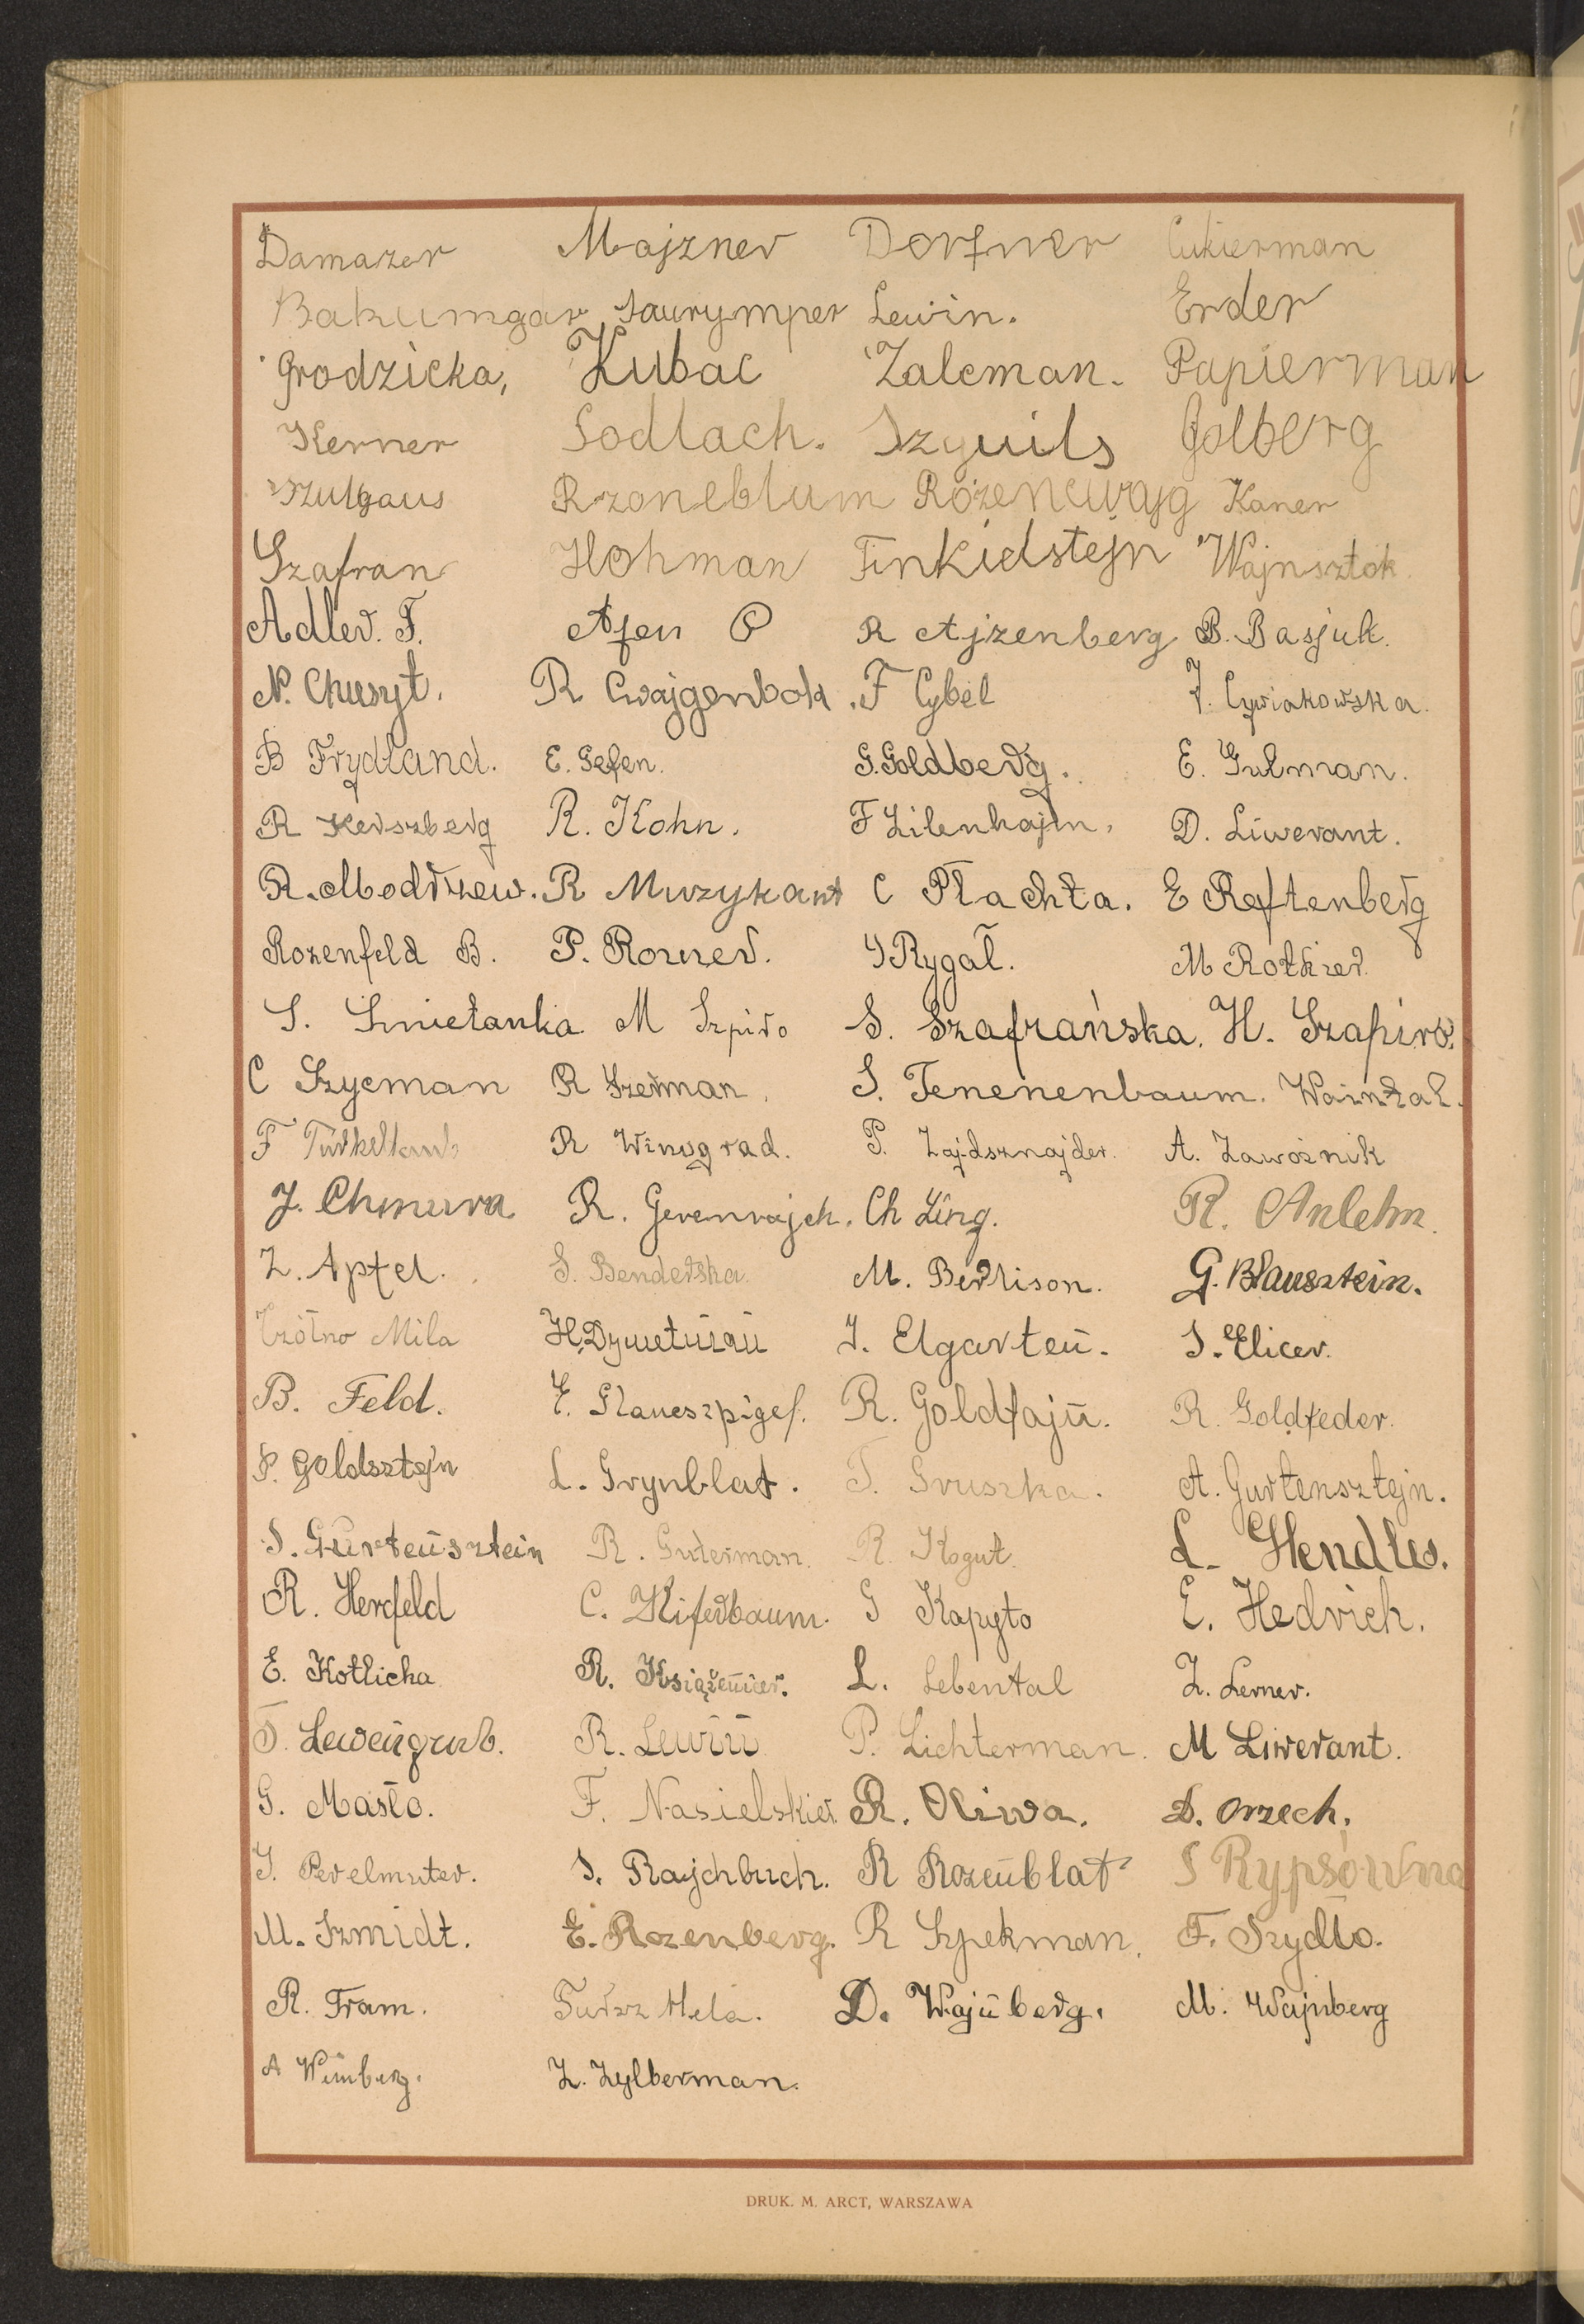 Damazer Majzner Dorfner Cukierman
Bakumgar Lewin. Erder
Grodzicka, Kubac Zalcman. Papierman
Kerner Sodlach. Szyuils Golberg
Szulgaus Rzoneblum Rózencwajg Kaner
Szafran Hohman Finkielstejn Wajnsztok
Adler. F. Ajen P R Ajzenberg B. Basjuk.
N. Chuszyt. R Cwajgenbok. F Cybel J. Cywiakowska.
B Frydland. E. Gefen. G. Goldberg. E. Gulman.
R Kerszberg R. Kohn. F Lilenhajm. D. Liwerant.
R. Modrzew. R Muzykant C Płachta. E Raftenberg
Rozenfeld B. P. Rozner. S Rygał. M Rotkier.
S. Smietanka. M Szpiro S. Szafrańska. H. Szapiro.
C Szycman R Szerman. S. Tenenenbaum. Wainzal.
F Turkeltaub R Winograd. P. Zajdsznajder. A. Zawoźnik
J. Chmura R. Gerenrajch. Ch Ling. R. Anlehm.
Z. Apfel. S. Benderska. M. Berlison. G. Blausztein.
Czółno Mila H. Dymetman J. Elgarten. S. Elicer.
B. Feld. E. Glaueszpigel. R. Goldfajn. R. Goldfeder.
P. Goldsztejn L. Grynblat. T. Gruszka. A. Gurtensztejn.
S. Gurtensztein R. Guterman. R. Kogut. L. Hendles.
R. Hercfeld C. Kiferbaum. G Kapyto E. Hedrich.
E. Kotlicka R. Książenicer. L. Lebental Z. Lerner.
T. Lewengrub. R. Lewin P. Lichterman. M Liwerant.
G. Masło. F. Nasielskier R. Oliwa. D. Orzech.
J. Perelmuter. S. Rajchbuch. R Rozenblat S Rypsówna
M. Szmidt. E. Rozenberg. R Szpekman. F. Szydło.
R. Fram. Tursz Hela. D. Wajnberg. M. Wajnberg
A Weinberg. Z. Zylberman.
DRUK. M. ARCT, WARSZAWA